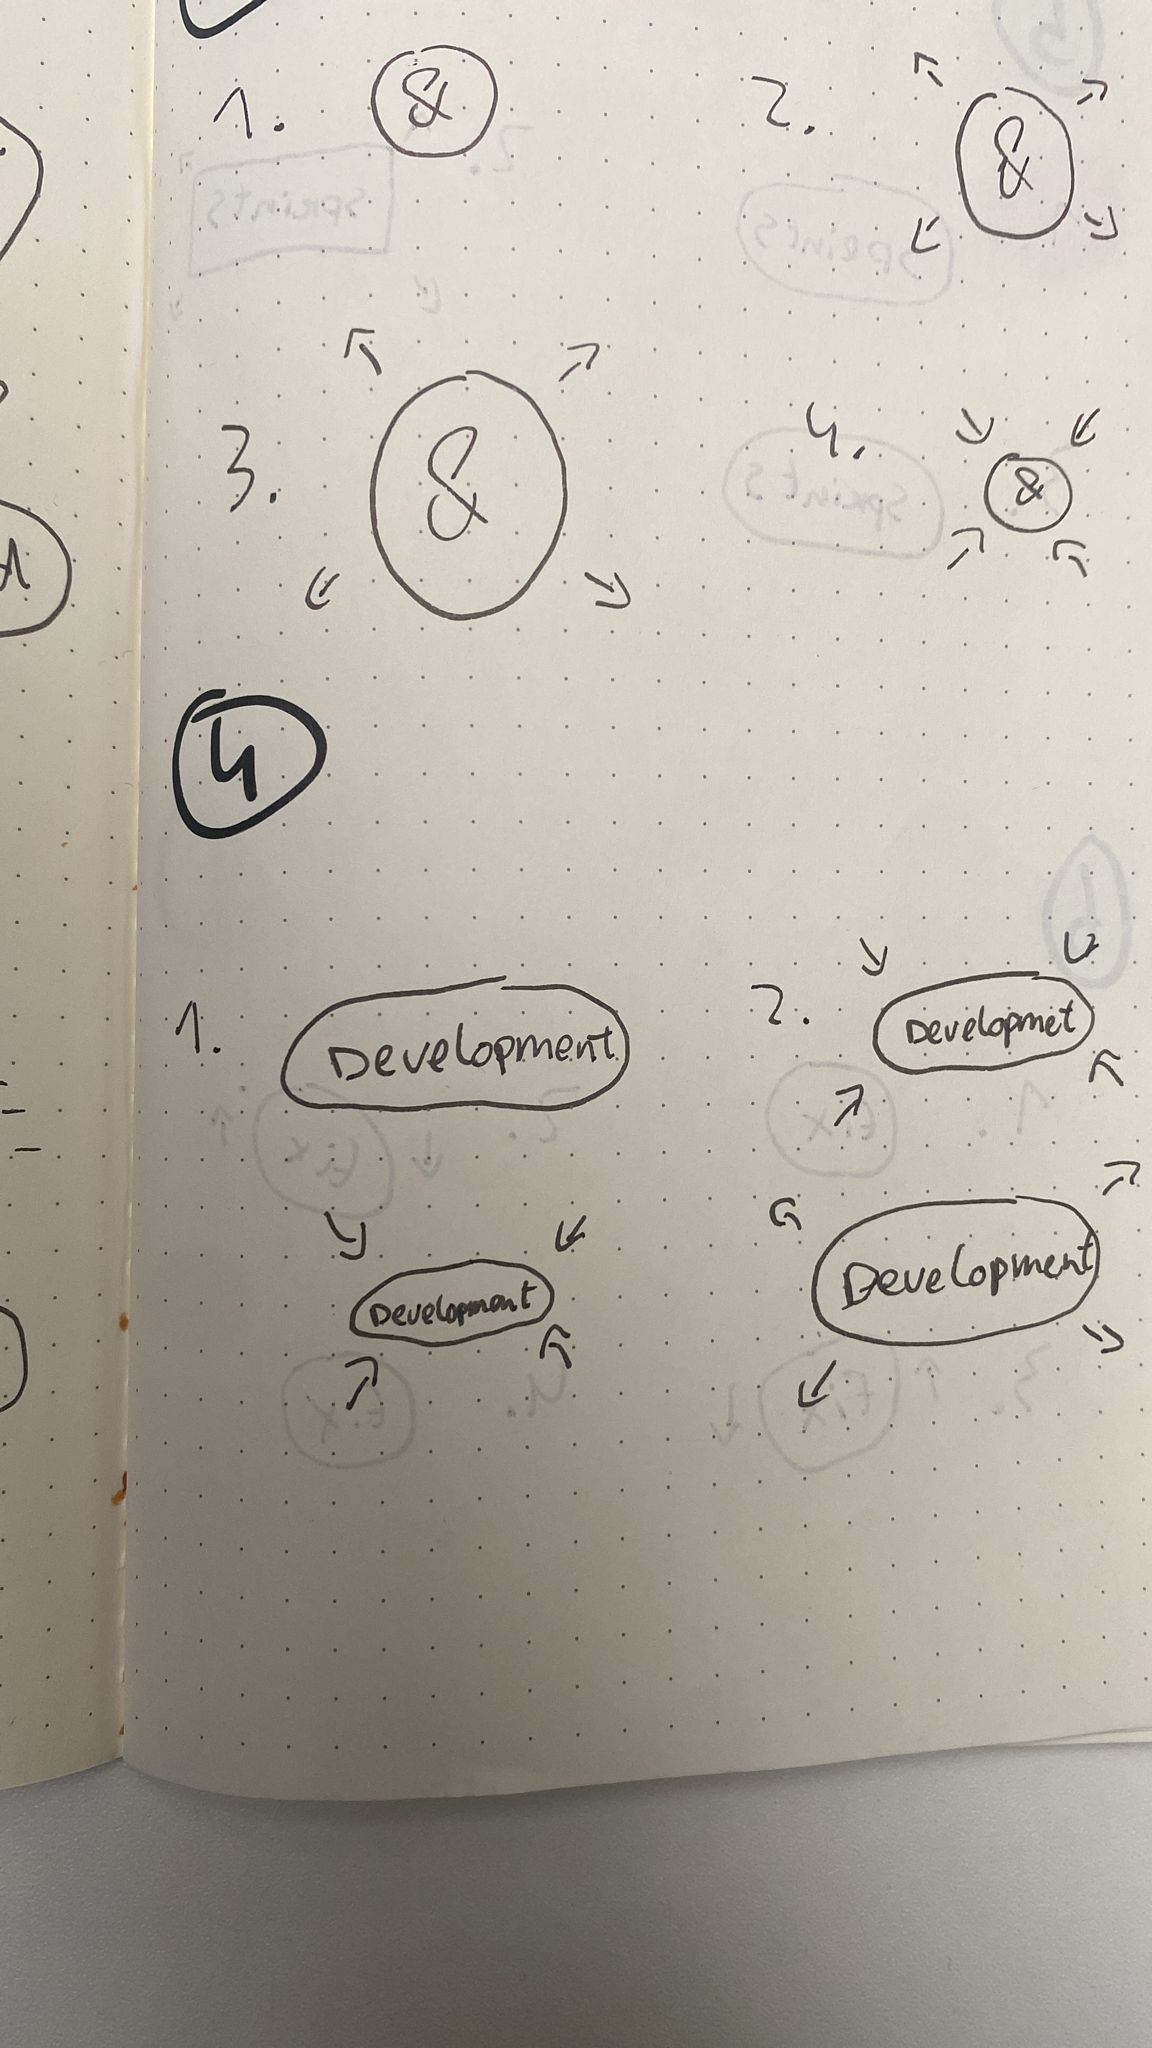 1. &
2. &
3. &
4. &
4
1. Development
2. Developmet
Development
Development